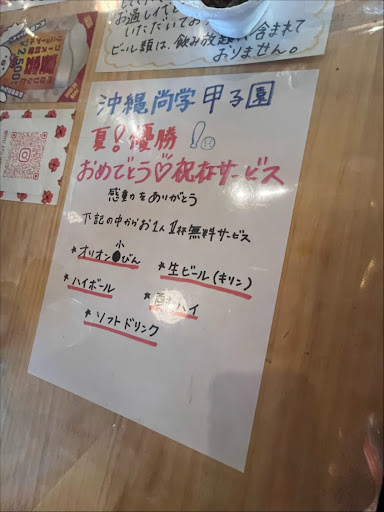 お過しイただ
いただいてお
ビール類は、飲み放題に含まれて
おりません。
沖縄尚学 甲子園
夏!優勝!
おめでとう♡祝杯サービス
感動をありがとう
下記の中からお1人1杯無料サービス
*オリオン小●びん
*生ビール(キリン)
*ハイボール
*酎ハイ
*ソフトドリンク
2,500